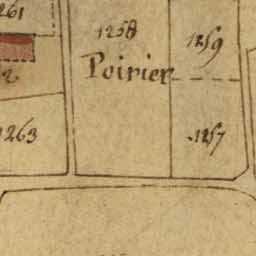 261
1258
1259
Poirier
2
263
1257